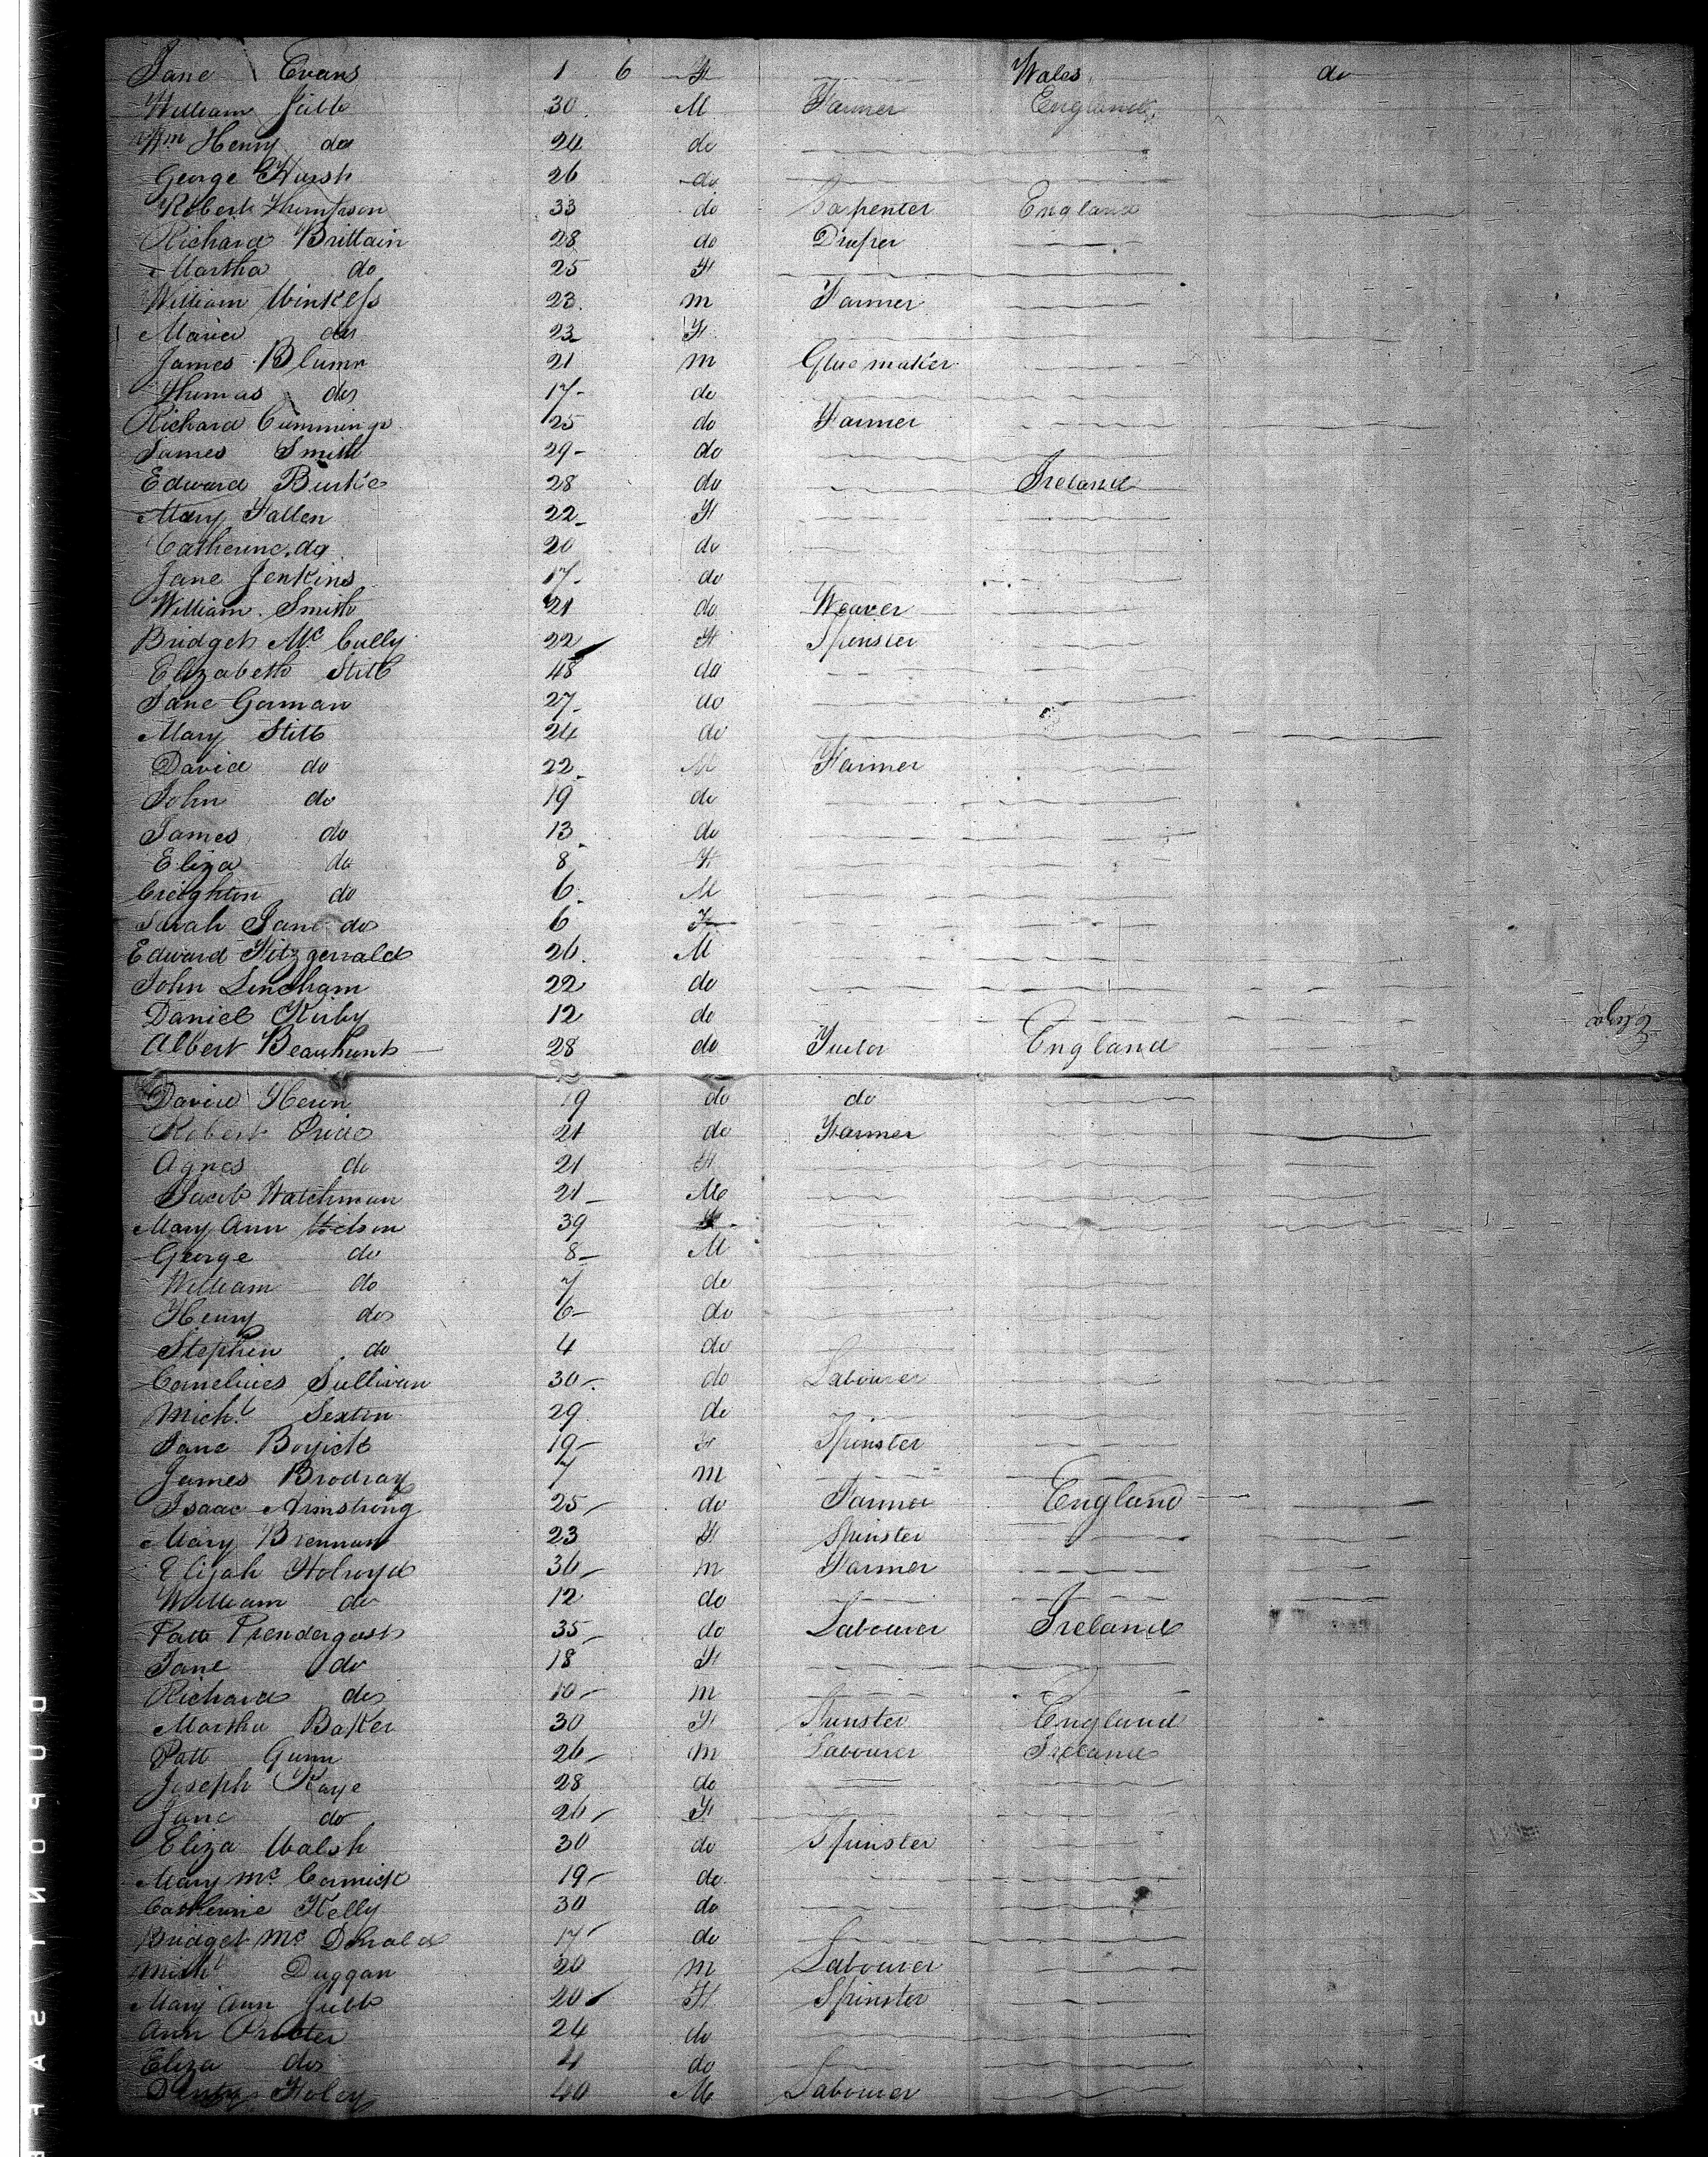 Jane Evans 1 6 F Wales do
William Jubb 30 M Farmer England
Wm Henry do 24 do
George Hursh 26 do
Robert Thompson 33 do Carpenter England
Richard Brittain 28 do Draper
Martha do 25 F
William Winkless 23 m Farmer
Maria do 23 F
James Blumr 21 m Glue maker
Thomas do 17 do
Richard Cummings 25 do Farmer
James Smith 29 do
Edward Burke 28 do Ireland
Mary Fallen 22 F
Catherine do 20 do
Jane Jenkins 17 do
William Smith 21 do Weaver
Bridget Mc Cully 22 F Spinster
Elizabeth Stitt 48 do
Jane Gorman 27 do
Mary Stitt 24 do
David do 22 M Farmer
John do 19 do
James do 13 do
Eliza do 8 F
Creighton do 6 M
Sarah Jane do 6 F
Edward Fitzgerrald 26 M
John Lincham 22 do
Daniel Kirby 12 do
Eliza
Albert Beaumont 28 do England
David Heron 19 do do
Robert Price 21 do Farmer
Agnes do 21 F
Jacob Watchman 21 M
Mary Ann 39 F
George do 8 M
William do 7 do
Henry do 6 do
Stephen do 4 do
Cornelius Sullivan 30 do Labourer
Michl Sexton 29 do
Jane 19 F Spinster
James Brodray 7 m
Isaac Armstrong 25 do Farmer England
Mary Brennan 23 F Spinster
Elijah Holroyd 36 m Farmer
William do 12 do
Patt Prendergast 35 do Labourer Ireland
Jane do 18 F
Richard do 10 m
Martha Baker 30 F Spinster England
Patt Gunn 26 m Labourer Ireland
Joseph Kaye 28 do
Jane do 26 F
Eliza Walsh 30 do Spinster
Mary Mc Cormick 19 do
Catherine Kelly 30 do
Bridget Mc Donald 17 do
Michl Duggan 20 m Labourer
Mary Ann Jubb 20 F Spinster
Ann Procter 24 do
Eliza do 4 do
Foley 40 M Labourer